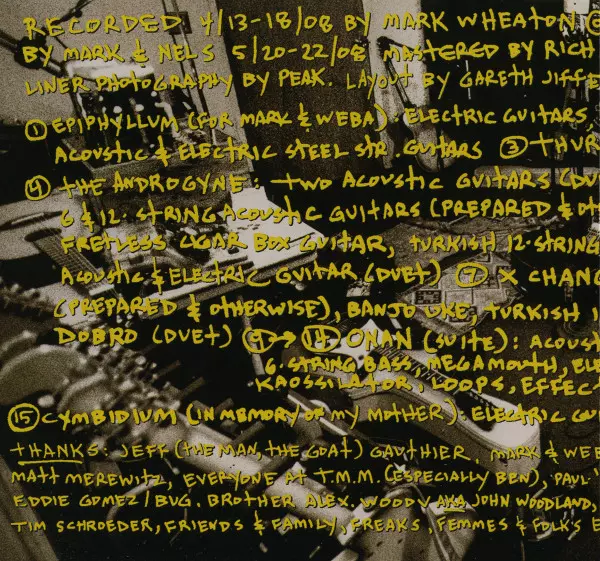 RECORDED 4/13-18/08 BY MARK WHEATON
BY MARK & NELS 5/20-22/08 MASTERED BY RICH
LINER PHOTOGRAPHY BY PEAK. LAYOUT BY GARETH JIFFE
① EPIPHYLLUM (FOR MARK & WEBA): ELECTRIC GUITARS,
ACOUSTIC & ELECTRIC STEEL STR. GUITARS ③ THUR
④ THE ANDROGYNE: TWO ACOUSTIC GUITARS (DU
6 & 12-STRING ACOUSTIC GUITARS (PREPARED & OT
FRETLESS CIGAR BOX GUITAR, TURKISH 12-STRING
ACOUSTIC & ELECTRIC GUITAR (DUET) ⑦ X CHANG
(PREPARED & OTHERWISE), BANJO UKE, TURKISH 1
DOBRO (DUET) ⑨→⑭ ONAN (SUITE): ACOUST
6-STRING BASS, MEGAMOUTH, ELE
KAOSSILATOR, LOOPS, EFFECT
⑮ CYMBIDIUM (IN MEMORY OF MY MOTHER): ELECTRIC GU
THANKS: JEFF (THE MAN, THE GOAT) GAUTHIER, MARK & WEB
MATT MEREWITZ, EVERYONE AT T.M.M. (ESPECIALLY BEN), PAUL
EDDIE GOMEZ/BUG, BROTHER ALEX, WOODY AKA JOHN WOODLAND,
TIM SCHROEDER, FRIENDS & FAMILY, FREAKS, FEMMES & FOLKS E